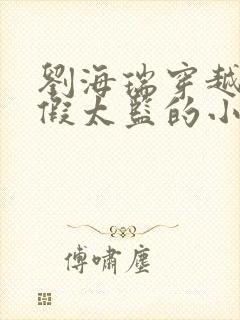 劉海瑞穿越
假太監的小
傅嘯塵